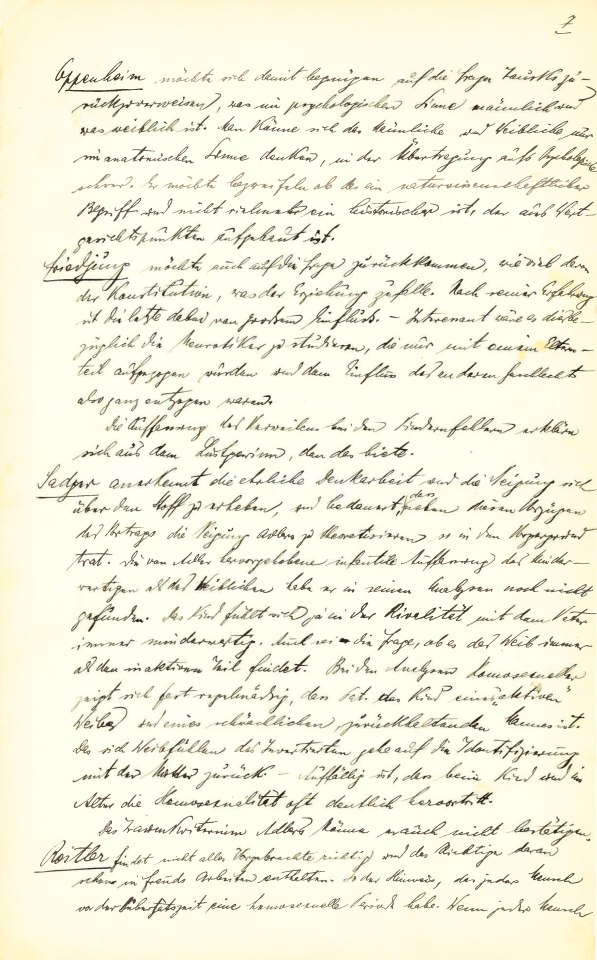 7
Oppenheim möchte sich damit begnügen auf die Frage Tausks zu-
rückzuverweisen, was im psychologischen Sinne männlich und
was weiblich ist. Man könne sich das Männliche und Weibliche nur
im anatomischen Sinne denken, in der Übertragung aufs Psychologische
schwer. Er möchte bezweifeln ob das ein naturwissenschaftlicher
Begriff und nicht vielmehr ein historischer ist, der aus Wert-
gesichtspunkten aufgebaut ist.
Friedjung möchte auch auf die Frage zurückkommen, wie viel davon
der Konstitution, was der Erziehung zufalle. Nach seiner Erfahrung
ist die letzte dabei von grossem Einfluss. – Interessant wäre es diesbe-
züglich die Neurotiker zu studieren, die nur mit einem Eltern-
teil aufgezogen wurden und dem Einfluss des anderen Geschlechts
also ganz entzogen waren.
Die Auffassung des Verweilens bei den Kinderfehlern erkläre
sich aus dem Lustgewinn, den das biete.
Sadger anerkennt die ehrliche Denkarbeit und die Neigung sich
über den Stoff zu erheben, und bedauert, dass neben diesen Vorzügen
des Vortrags die Neigung Adlers zu theoretisieren so in den Vordergrund
trat. Die von Adler hervorgehobene infantile Auffassung des Minder-
wertigen als des Weiblichen habe er in seinen Analysen noch nicht
gefunden. Das Kind fühlt sich ja in der Rivalität mit dem Vater
immer minderwertig. Auch sei die Frage, ob es das Weib immer
als den inaktiven Teil findet. Bei den Analysen Homosexueller
zeigt sich fast regelmässig, dass Pat. das Kind eines „aktiven“
Weibes und eines schwächlichen zurückhaltenden Mannes ist.
Das sich Weibfühlen des Invertierten gehe auf die Identifizierung
mit der Mutter zurück. – Auffällig ist, dass beim Kind und im
Alter die Homosexualität oft deutlich hervortritt.
Das Traumkriterium Adlers könne er auch nicht bestätigen.
Reitler findet nicht alles Vorgebrachte richtig und das Richtige daran
schon in Freuds Arbeiten enthalten. So der Hinweis, dass jeder Mensch
vor der Pubertätszeit eine homosexuelle Periode habe. Wenn jeder Mensch